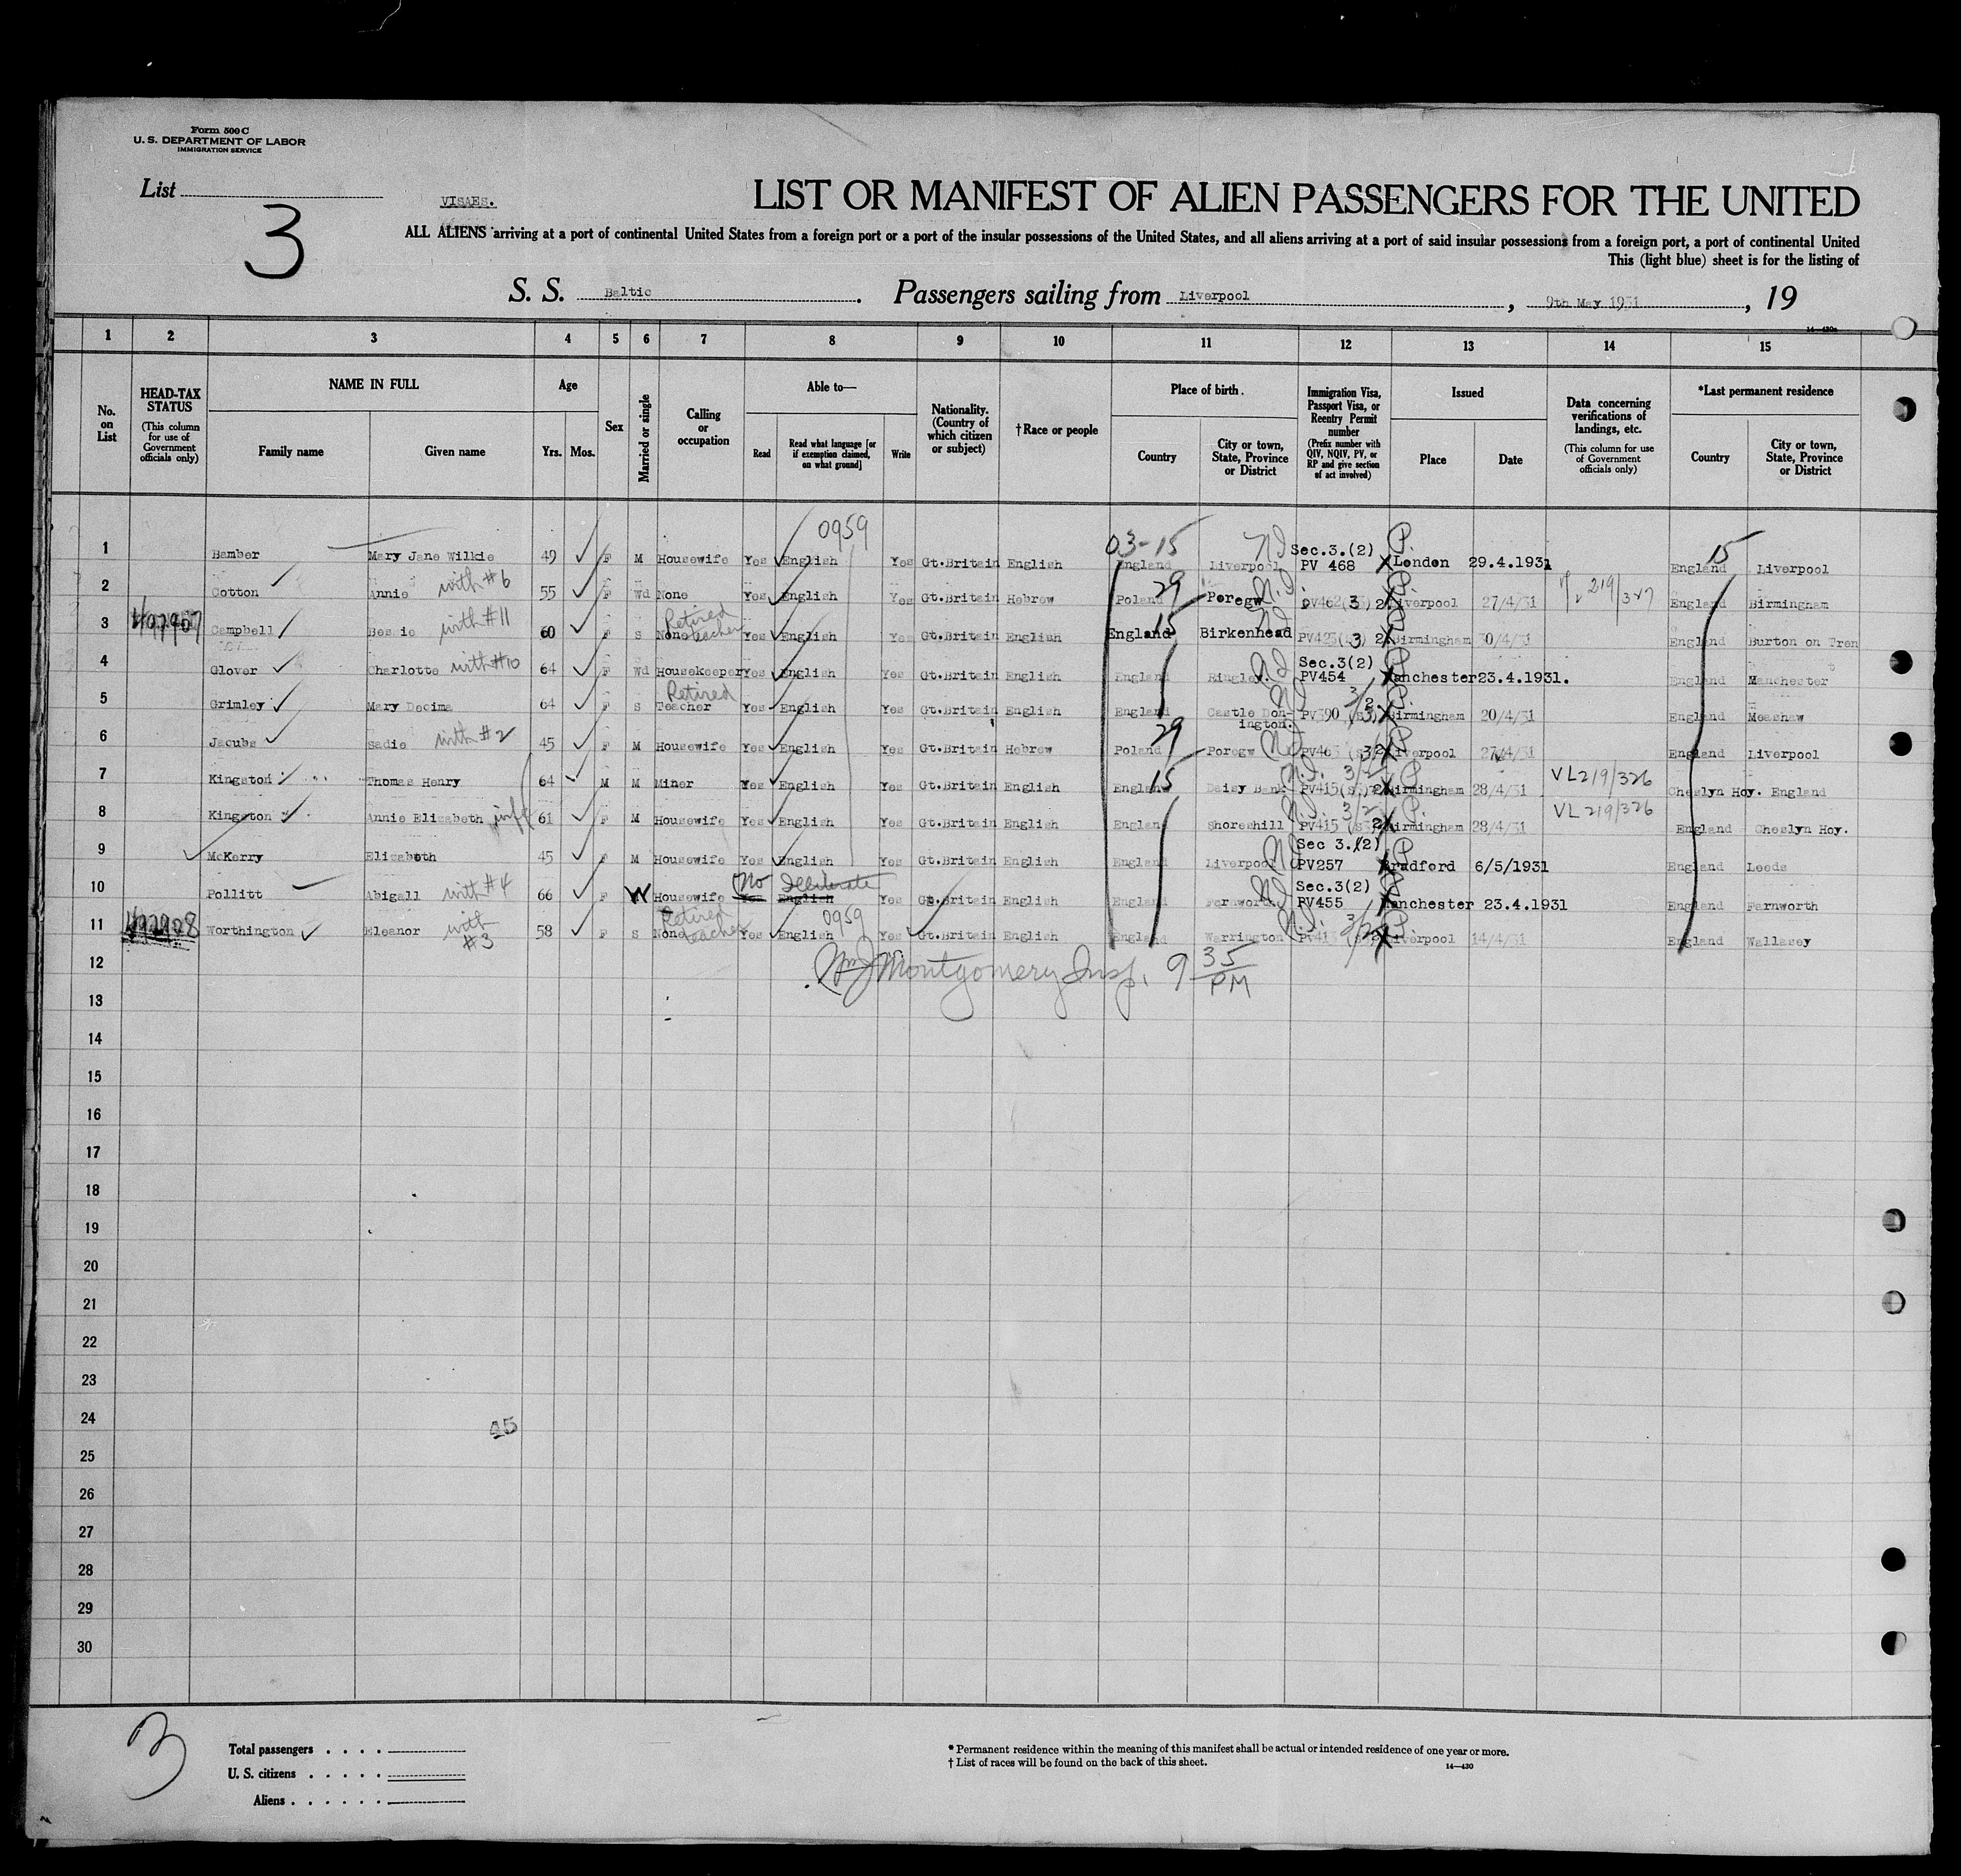 Form 500 C
U. S. DEPARTMENT OF LABOR
IMMIGRATION SERVICE
List
3
VISAES.
LIST OR MANIFEST OF ALIEN PASSENGERS FOR THE UNITED
ALL ALIENS arriving at a port of continental United States from a foreign port or a port of the insular possessions of the United States, and all aliens arriving at a port of said insular possessions from a foreign port, a port of continental United
This (light blue) sheet is for the listing of
S. S. Baltic. Passengers sailing from Liverpool, 9th May 1931, 19
14—430a
1 2 3 4 5 6 7 8 9 10 11 12 13 14 15
No. on List
HEAD-TAX STATUS (This column for use of Government officials only)
NAME IN FULL Family name Given name
Age Yrs. Mos.
Sex
Married or single
Calling or occupation
Able to— Read Read what language [or if exemption claimed, on what ground] Write
Nationality. (Country of which citizen or subject)
†Race or people
Place of birth. Country City or town, State, Province or District
Immigration Visa, Passport Visa, or Reentry Permit number (Prefix number with QIV, NQIV, PV, or RP and give section of act involved)
Issued Place Date
Data concerning verifications of landings, etc. (This column for use of Government officials only)
*Last permanent residence Country City or town, State, Province or District
0959 03-15 15
1 Bamber Mary Jane Wilkie 49 F M Housewife Yes English Yes Gt.Britain English England Liverpool Sec.3.(2) PV 468 London 29.4.1931 England Liverpool
2 Cotton Annie with #6 55 F Wd None Yes English Yes Gt.Britain Hebrew Poland 29 Poregw Liverpool 27/4/31 219/327 England Birmingham
3 Campbell Bessie with #11 60 F S None Retired teacher Yes English Yes Gt.Britain English England 15 Birkenhead Birmingham 30/4/31 England Burton on Tren
4 Glover Charlotte with #10 64 F Wd Housekeeper Yes English Yes Gt.Britain English England Sec.3(2) PV454 Manchester 23.4.1931. England Manchester
5 Grimley Mary Decima 64 F S Retired Teacher Yes English Yes Gt.Britain English England Castle Donington. PV390 Birmingham 20/4/31 England Meashaw
6 Jacobs Sadie with #2 45 F M Housewife Yes English Yes Gt.Britain Hebrew Poland 29 Poregw Liverpool 27/4/31 England Liverpool
7 Kingston Thomas Henry 64 M M Miner Yes English Yes Gt.Britain English England 15 Daisy Bank PV415 Birmingham 28/4/31 VL219/326 Cheslyn Hoy. England
8 Kingston Annie Elizabeth wife 61 F M Housewife Yes English Yes Gt.Britain English England Shoreshill PV415 Birmingham 28/4/31 VL219/326 England Cheslyn Hoy.
9 McKerry Elizabeth 45 F M Housewife Yes English Yes Gt.Britain English England Liverpool Sec 3.(2) PV257 Bradford 6/5/1931 England Leeds
10 Pollitt Abigail with #4 66 F W Housewife No Yes Illiterate English Yes Gt.Britain English England Farnworth Sec.3(2) PV455 Manchester 23.4.1931 England Farnworth
11 Worthington Eleanor with #3 58 F S None Retired teacher Yes English 0959 Yes Gt.Britain English England Warrington Liverpool 14/4/31 England Wallasey
12 Wm J Montgomery Insp. 9 35 PM
13
14
15
16
17
18
19
20
21
22
23
24
45
25
26
27
28
29
30
3
Total passengers
U. S. citizens
Aliens
* Permanent residence within the meaning of this manifest shall be actual or intended residence of one year or more.
† List of races will be found on the back of this sheet.
14—430